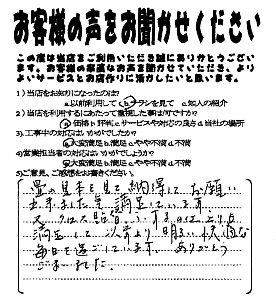 お客様の声をお聞かせください
この度は当店をご利用いただき誠にありがとうござい
ます。お客様の率直なお声を聞かせていただき、より
よいサービスとお店作りに活かしたいと思います。
1)当店をお知りになったのは?
a.以前利用して b.チラシを見て c.知人の紹介
2)当店を利用するにあたって重視した事は何ですか?
a.価格 b.評判 c.サービスや対応の良さ d.当社の場所
3).工事中の対応はいかがでしたか?
a.大変満足 b.満足 c.やや不満 d.不満
4)営業担当者の対応はいかがでしょうか?
a.大変満足 b.満足 c.やや不満 d.不満
5)ご意見、ご感想をお書きください。
畳の見本を見て納得してお願い
出来ました 満足しています
満足して 次第より 明るい 快適な
毎日を過ごしています。ありがとう
ございました。